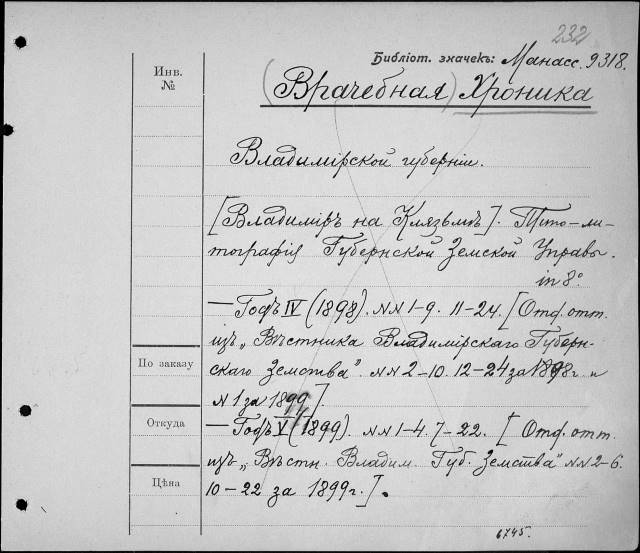 232
Библіот. значекъ: Манасс. 9318.
Инв.
№
(Врачебная) Хроника
Владимірской губерніи.
[Владиміръ на Клязьмѣ]. Типо-ли-
тографія Губернской Земской Управы.
in 8°
— Годъ IV (1898). NN 1-9. 11-24. [Отд. отт.
изъ „Вѣстника Владимірскаго Губерн-
скаго Земства". NN 2-10. 12-24 за 1898 г. и
N 1 за 1899].
По заказу
— Годъ V (1899). NN 1-4. 7-22. [Отд. отт.
Откуда
изъ „Вѣстн. Владим. Губ. Земства" NN 2-6.
10-22 за 1899 г.].
Цѣна
6745.